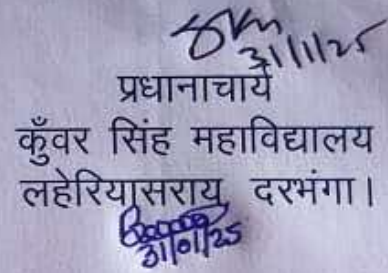 31/1/25
प्रधानाचार्य
कुँवर सिंह महाविद्यालय
लहेरियासराय, दरभंगा।
31/01/25